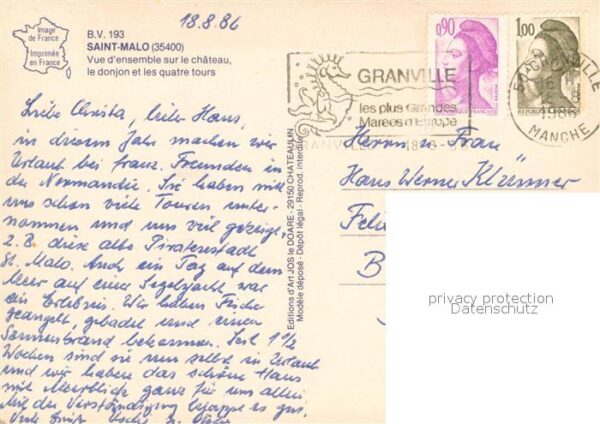 18.8.86
Image
de France
Imprimée
en France
B.V. 193
SAINT-MALO (35400)
Vue d'ensemble sur le château,
le donjon et les quatre tours
0,90
1,00
GRANVILLE
les plus Grandes
Marées d'Europe
MANCHE
Liebe Christa, lieber Hans,
in diesem Jahr machen wir
Urlaub bei franz. Freunden in
der Normandie. Sie haben mit
uns schon viele Touren unter-
nommen und uns viel gezeigt,
z.B. diese alte Piratenstadt
St. Malo. Auch ein Tag auf dem
Meer auf einer Segelyacht war
ein Erlebnis. Wir haben Fische
geangelt, gebadet und einen
Sonnenbrand bekommen. Seit 1 1/2
Wochen sind sie nun selbst in Urlaub
und wir haben das schöne Haus
mit Meerblick ganz für uns allein
Mit der Verständigung klappt es gut.
Viele Grüße
Editions d'Art JOS le DOARE - 29150 CHATEAULIN
Modèle déposé - Dépôt légal - Reprod. interdite
Herrn + Frau
Hans Werner
privacy protection
Datenschutz